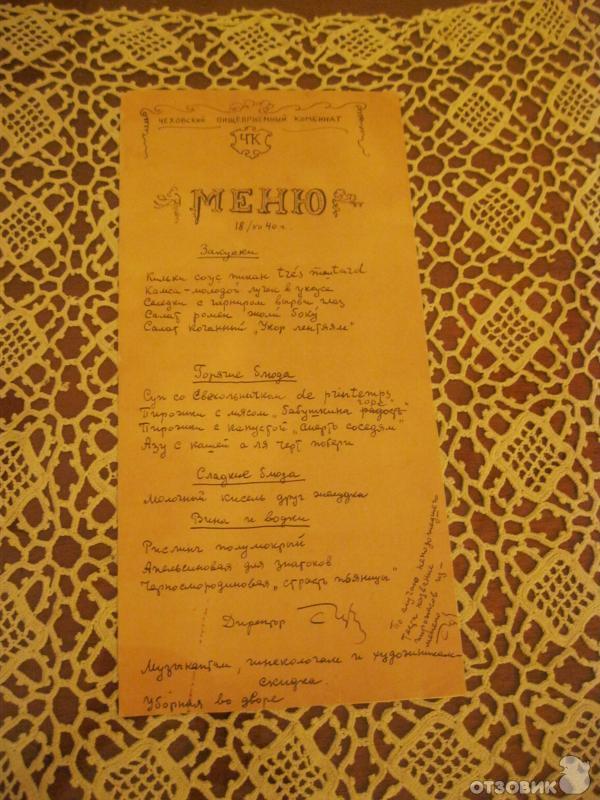 ЧЕХОВСКИЙ ПИЩЕПРИЕМНЫЙ КОМБИНАТ
ЧК
МЕНЮ
18/VII 40 г.
Закуски
Кильки соус пикан très moutard
Камса-молодой лучок в уксусе
Селедки с гарниром вырви глаз
Салат ромен жоли боку
Салат кочанный „Укор лентяям"
Горячие блюда
Суп со свекольничком de printemps
Пирожки с мясом „Бабушкина радость" горе
Пирожки с капустой „Смерть соседям"
Азу с кашей а ля черт побери
Сладкие блюда
Молочный кисель друг желудка
Вина и водки
Рислинг полумокрый
Апельсиновая для знатоков
Черносмородиновая „страсть пьяницы"
Директор
По случаю
теста название
пирожков из-
менено
Музыкантам, гинекологам и художникам-
скидка.
Уборная во дворе
ОТЗОВИК